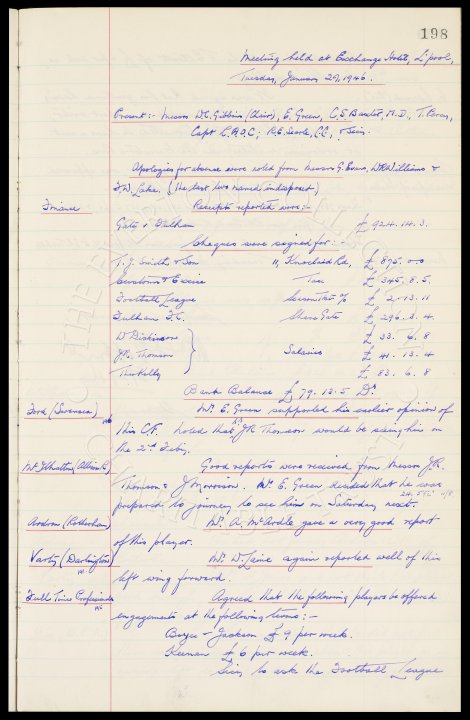 198
Meeting held at Exchange Hotel, L'pool,
Tuesday, January 29, 1946.
Present :- Messrs W.C. Gibbins (Chair), E. Green, C.S. Baxter, M.D., T. Percy,
Capt. C.R.O.C; R.E. Searle, C.C., & Secy.
Apologies for absence were noted from Messrs G. Evans, W.R. Williams &
F.W. Lake. (The last two named indisposed)
Finance Receipts reported were :-
Gate v Fulham £ 924. 14. 3.
Cheques were signed for :-
T.J. Smith & Son 11, Knoclaid Rd, £ 895. 0. 0
Customs & Excise Tax £ 345. 8. 5.
Football League £ 2. 13. 11
Fulham F.C. Share Gate £ 296. 3. 4.
W. Dickinson £ 33. 6. 8
J.R. Thomson Salaries £ 41. 13. 4
Theo Kelly £ 83. 6. 8
Bank Balance £ 79. 13. 5 Dr.
Ford (Swansea) Mr. E. Green supported his earlier opinion of
this C.F. Noted that J.R. Thomson would be seeing him on
the 2nd Feby.
Good reports were received from Messrs J.R.
Thomson & J. Morrison. Mr. E. Green decided that he was
prepared to journey to see him on Saturday next.
(Rotherham) Mr. A. McArdle gave a very good report
of this player.
Varty (Darlington) Mr. W. Laine again reported well of this
left wing forward.
Full Time Professionals Agreed that the following players be offered
engagements at the following terms :-
Boyes – Jackson £ 9 per week.
Keenan £ 6 per week.
Secy to ask the Football League